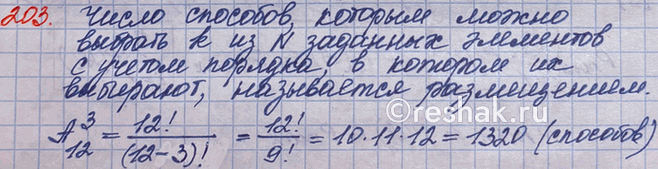 203. Число способов, которым можно
выбрать k из N заданных элементов
с учетом порядка, в котором их
выбирают, называется размещением.
A₁₂³ = 12!/(12-3)! = 12!/9! = 10·11·12 = 1320 (способов)
©reshak.ru